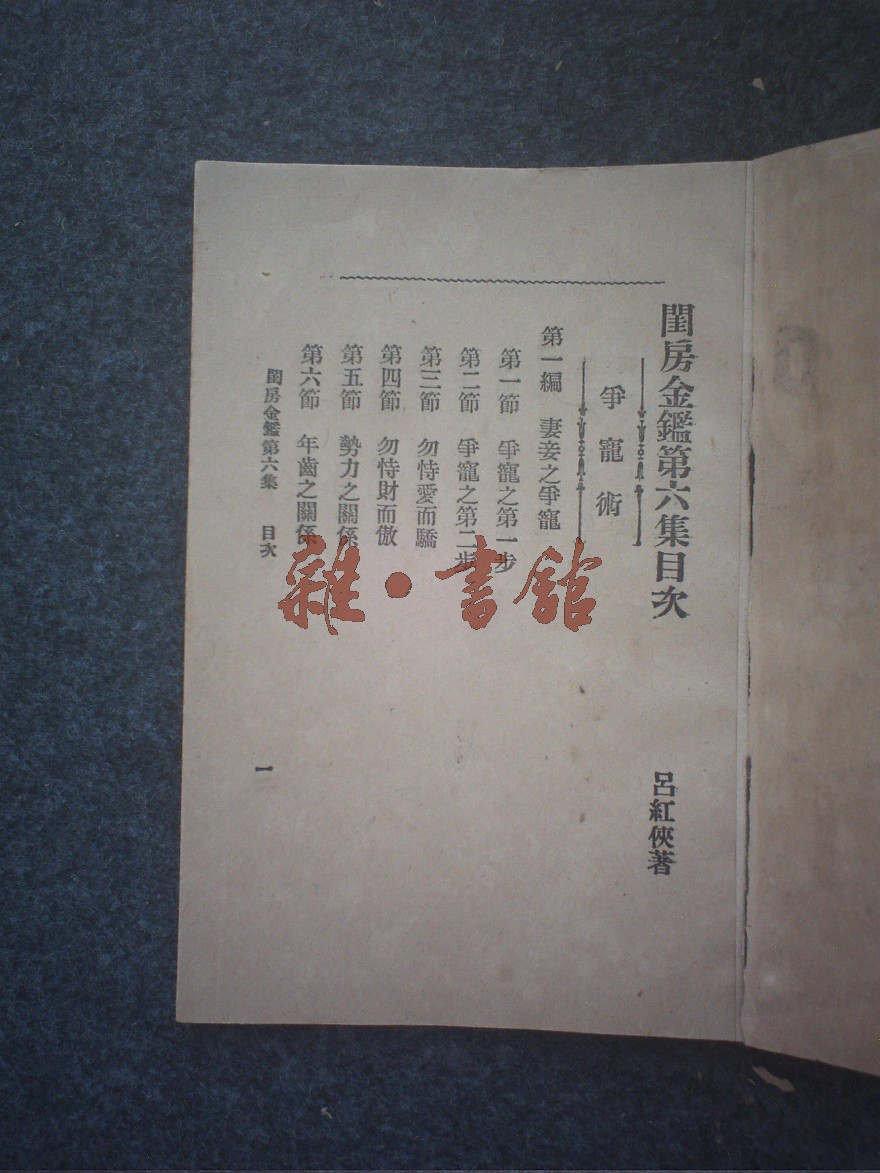 閨房金鑑第六集目次
呂紅俠著
爭寵術
第一編　妻妾之爭寵
第一節　爭寵之第一步
第二節　爭寵之第二步
第三節　勿恃愛而驕
第四節　勿恃財而傲
第五節　勢力之關係
第六節　年齒之關係
閨房金鑑第六集　目次
一
雜·書館